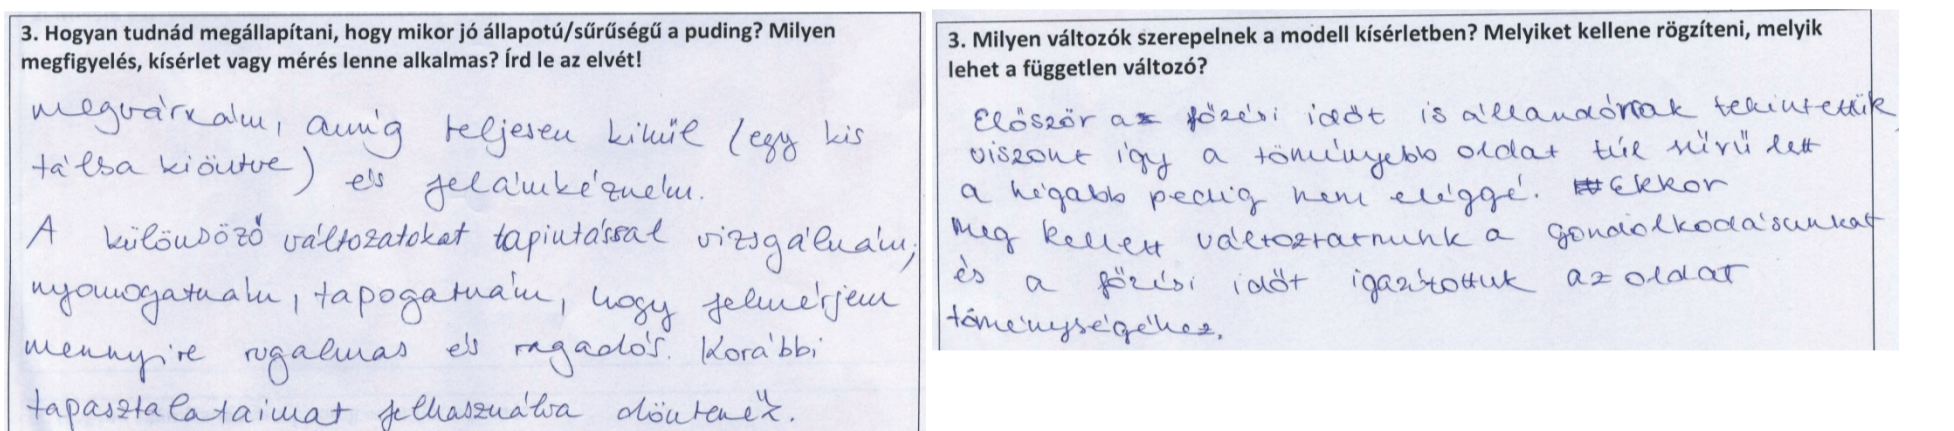 3. Hogyan tudnád megállapítani, hogy mikor jó állapotú/sűrűségű a puding? Milyen
megfigyelés, kísérlet vagy mérés lenne alkalmas? Írd le az elvét!
megvárnám, amíg teljesen kihűl (egy kis
tálba kiöntve) és felámkéznám.
A különböző változatokat tapintással vizsgálnám,
nyomogatnám, tapogatnám, hogy felmérjem
mennyire rugalmas és ragadós. Korábbi
tapasztalataimat felhasználva döntenék.
3. Milyen változók szerepelnek a modell kísérletben? Melyiket kellene rögzíteni, melyik
lehet a független változó?
Először a főzési időt is állandónak tekintettük,
viszont így a töményebb oldat túl sűrű lett
a hígabb pedig nem eléggé. Ekkor
meg kellett változtatnunk a gondolkodásunkat
és a főzési időt igazítottuk az oldat
töménységéhez.